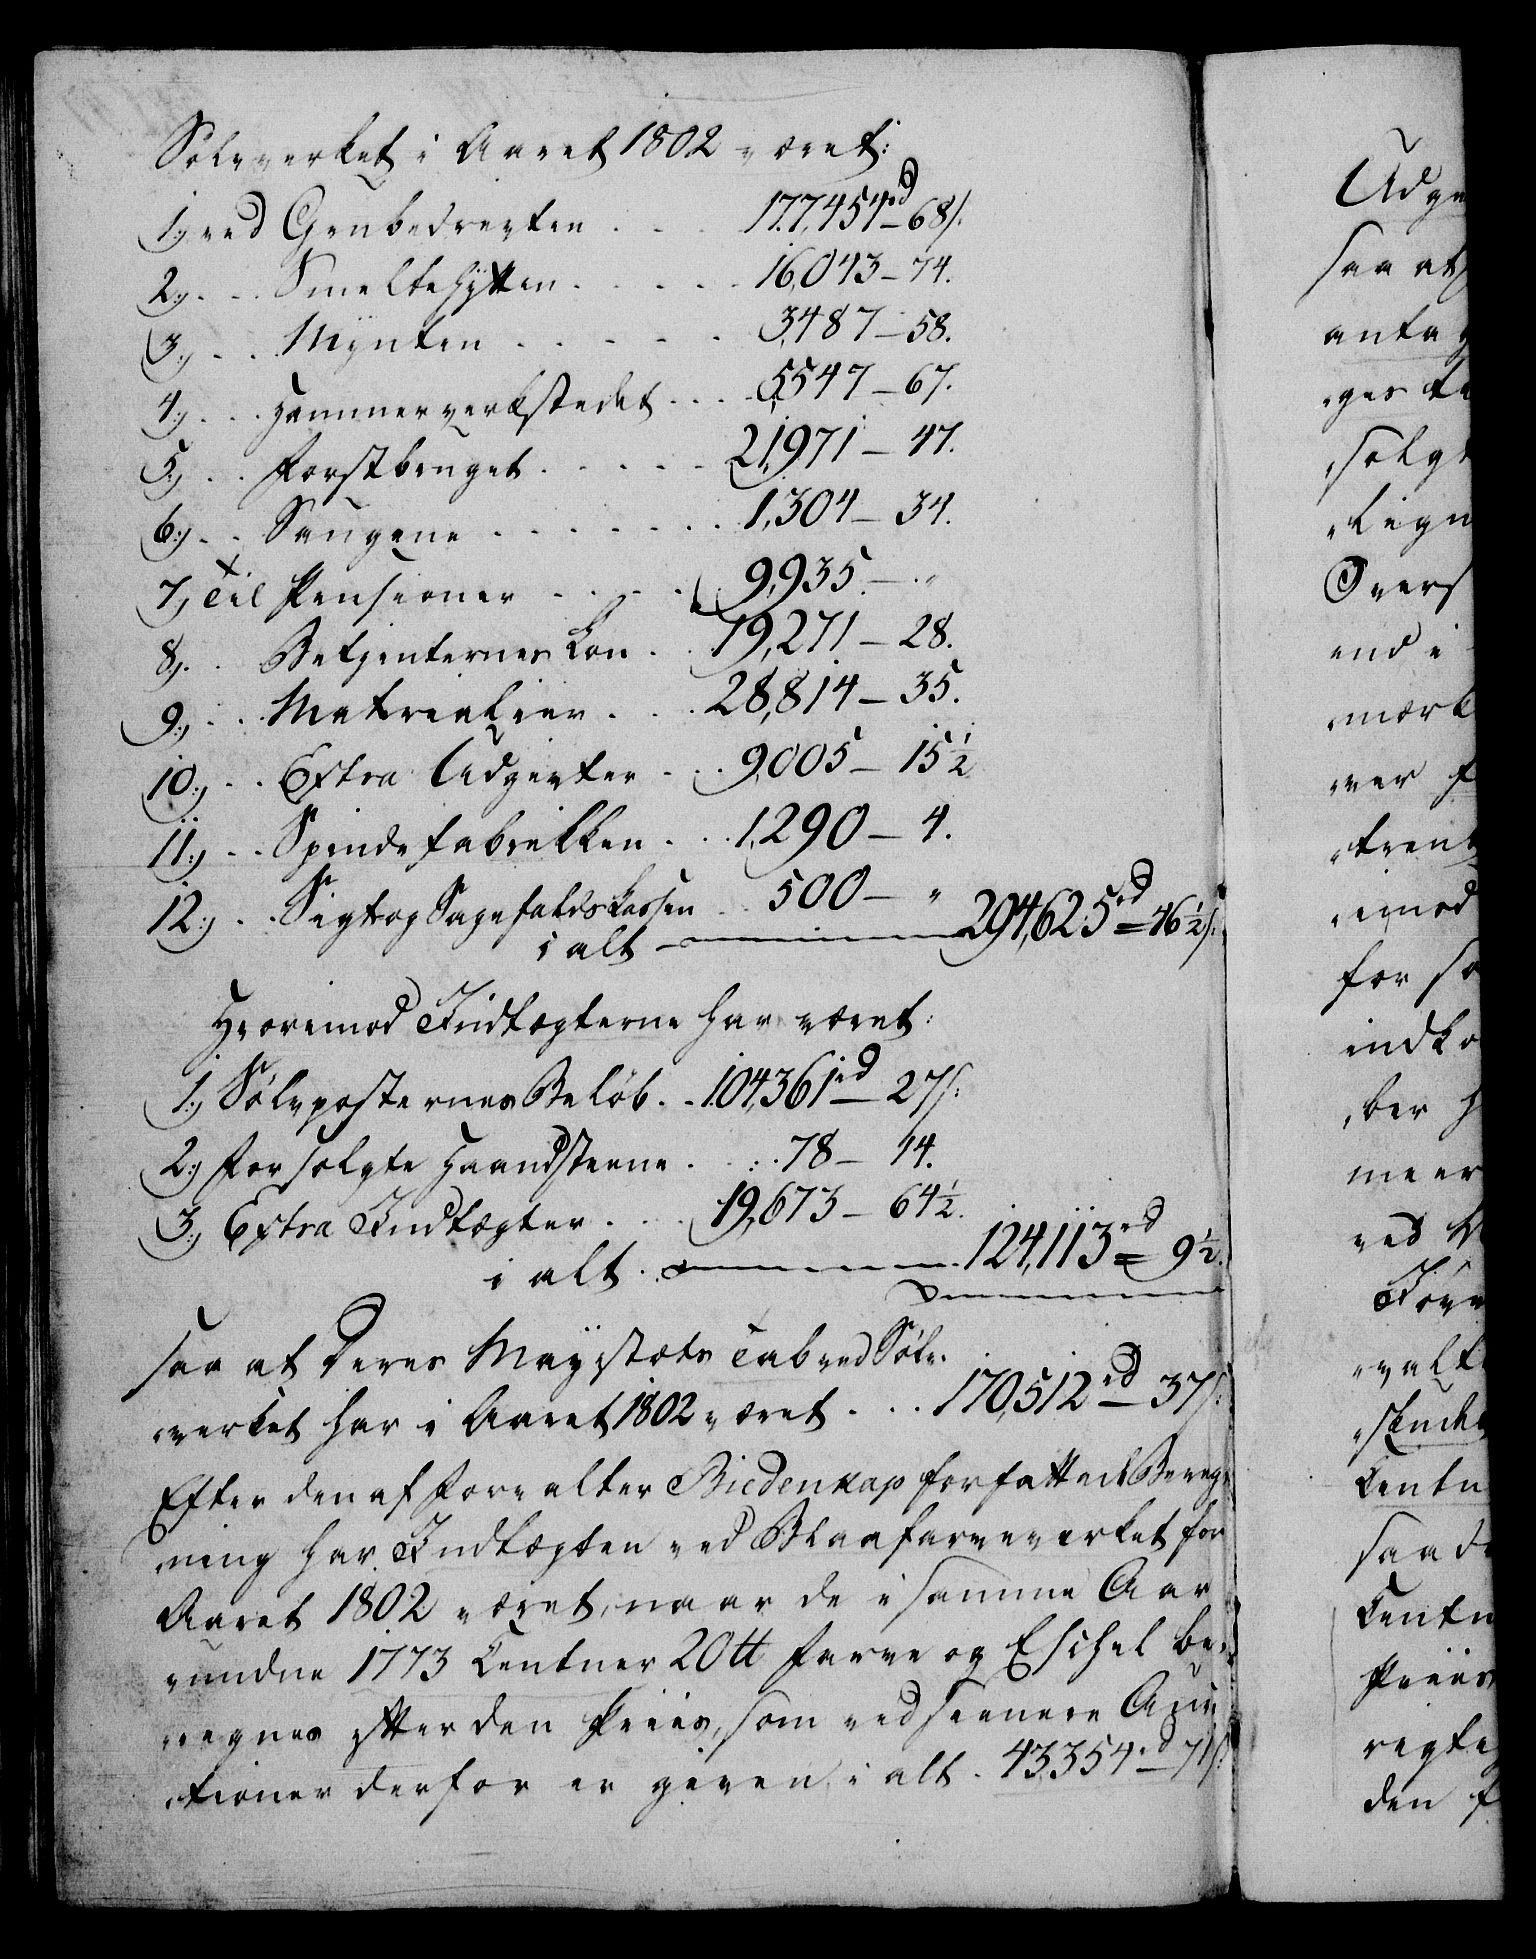 Sølvverket i Aaret 1802 været:
1:, ved Grubedrivten . . . 177,454rd — 68 s.
2:, . . Smeltehytten . . . . . 16,043 — 74.
3:, . . Mynten . . . . . . 3,487 — 58.
4:, . . Hammerverkstedet . . . . 5,547 — 67.
5:, . . Forstbruget . . . . . 21,971 — 47.
6:, . . Saugene . . . . . . . 1,304 — 34.
7:, Til Pensioner . . . . . 9,935. — . "
8:, . . Betjenternes Løn . . 19,271 — 28.
9:, . . Matrialier . . . . 28,814 — 35.
10:, . . Extra Udgivter . . . 9,005 — 15½
11:, . . Spindefabrikken . . . 1,290 — 4.
12:, . . Sigt og Sagefaldskassen . . 500 — "
i alt — 294,625rd = 46½ s.
Hvorimod Indtægterne har været:
1:, Sølvposternes Beløb . . 104,361rd — 27 s.
2:, for solgte Haandsteene . . : . 78 — 14.
3:, Extra Indtægter . . . . 19,673 — 64½.
i alt . — 124,113rd = 9½.
saa at Deres Mayestæts Tab ved Sølv-
verket har i Aaret 1802 været . . . 170,512rd — 37 s.
Efter den af Forvalter Biedenkap forfattede Bereg-
ning har Indtægten ved Blaafarveverket for
Aaret 1802 været, naar de i samme Aar
vundne 1773 Centner 20 ℔ Farve og Eschel be-
regnes efter den Priis, som ved seenere Auc-
tioner derfor er given, i alt . 43,354rd — 71 s.
Udgi
saa at
antag
solgt
lign
Overs
end i
mærk
ver f
imod
for sa
indko
ber h
meer
ved
Centn
saade
Centn
Priis
rigti
den f